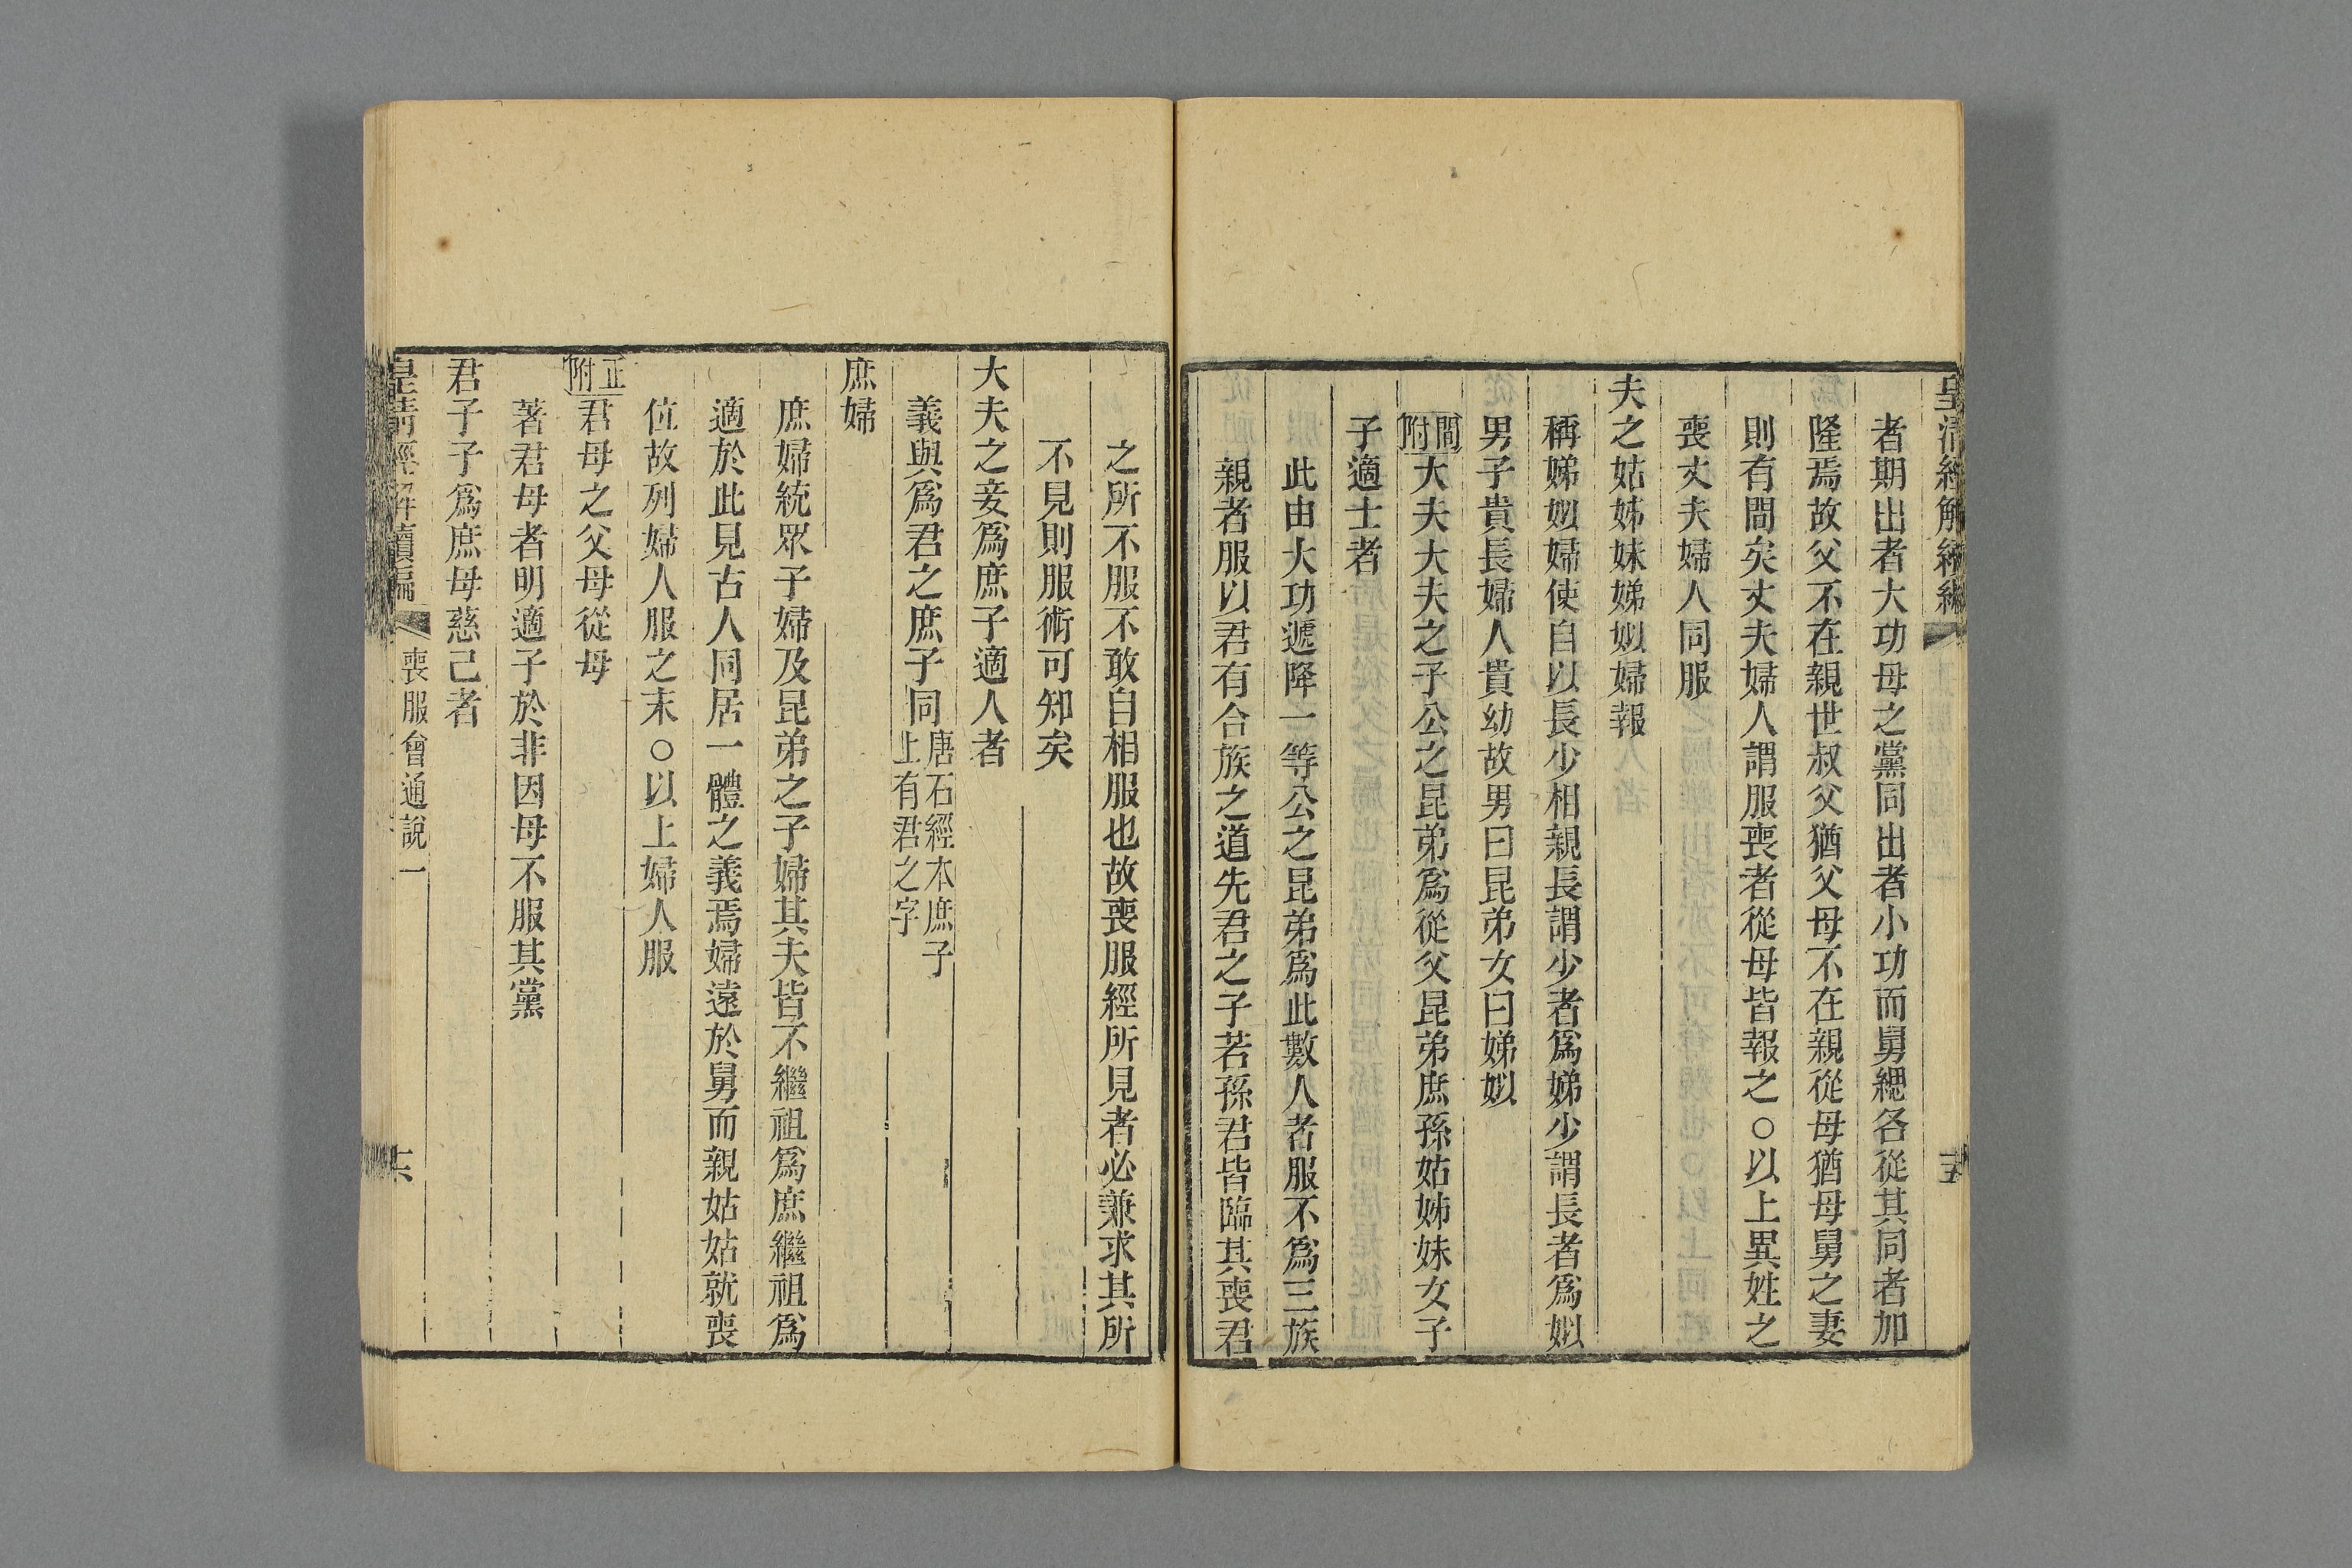 皇清經解續編
者期出者大功母之黨同出者小功而舅緦各從其同者加
隆焉故父不在親世叔父猶父母不在親從母猶母舅之妻
則有間矣丈夫婦人謂服喪者從母皆報之○以上異姓之
喪丈夫婦人同服
夫之姑姊妹娣姒婦報
稱娣姒婦使自以長少相親長謂少者爲娣少謂長者爲姒
男子貴長婦人貴幼故男曰昆弟女曰娣姒
間附大夫大夫之子公之昆弟爲從父昆弟庶孫姑姊妹女子
子適士者
此由大功遞降一等公之昆弟爲此數人者服不爲三族
親者服以君有合族之道先君之子若孫君皆臨其喪君
之所不服不敢自相服也故喪服經所見者必兼求其所
不見則服術可知矣
大夫之妾爲庶子適人者
義與爲君之庶子同唐石經本庶子上有君之字
庶婦
庶婦統眾子婦及昆弟之子婦其夫皆不繼祖爲庶繼祖爲
適於此見古人同居一體之義焉婦遠於舅而親姑姑就喪
位故列婦人服之末○以上婦人服
正附君母之父母從母
著君母者明適子於非因母不服其黨
君子子爲庶母慈己者
皇清經解續編 喪服會通說一